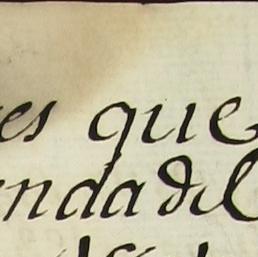 es que
nda del